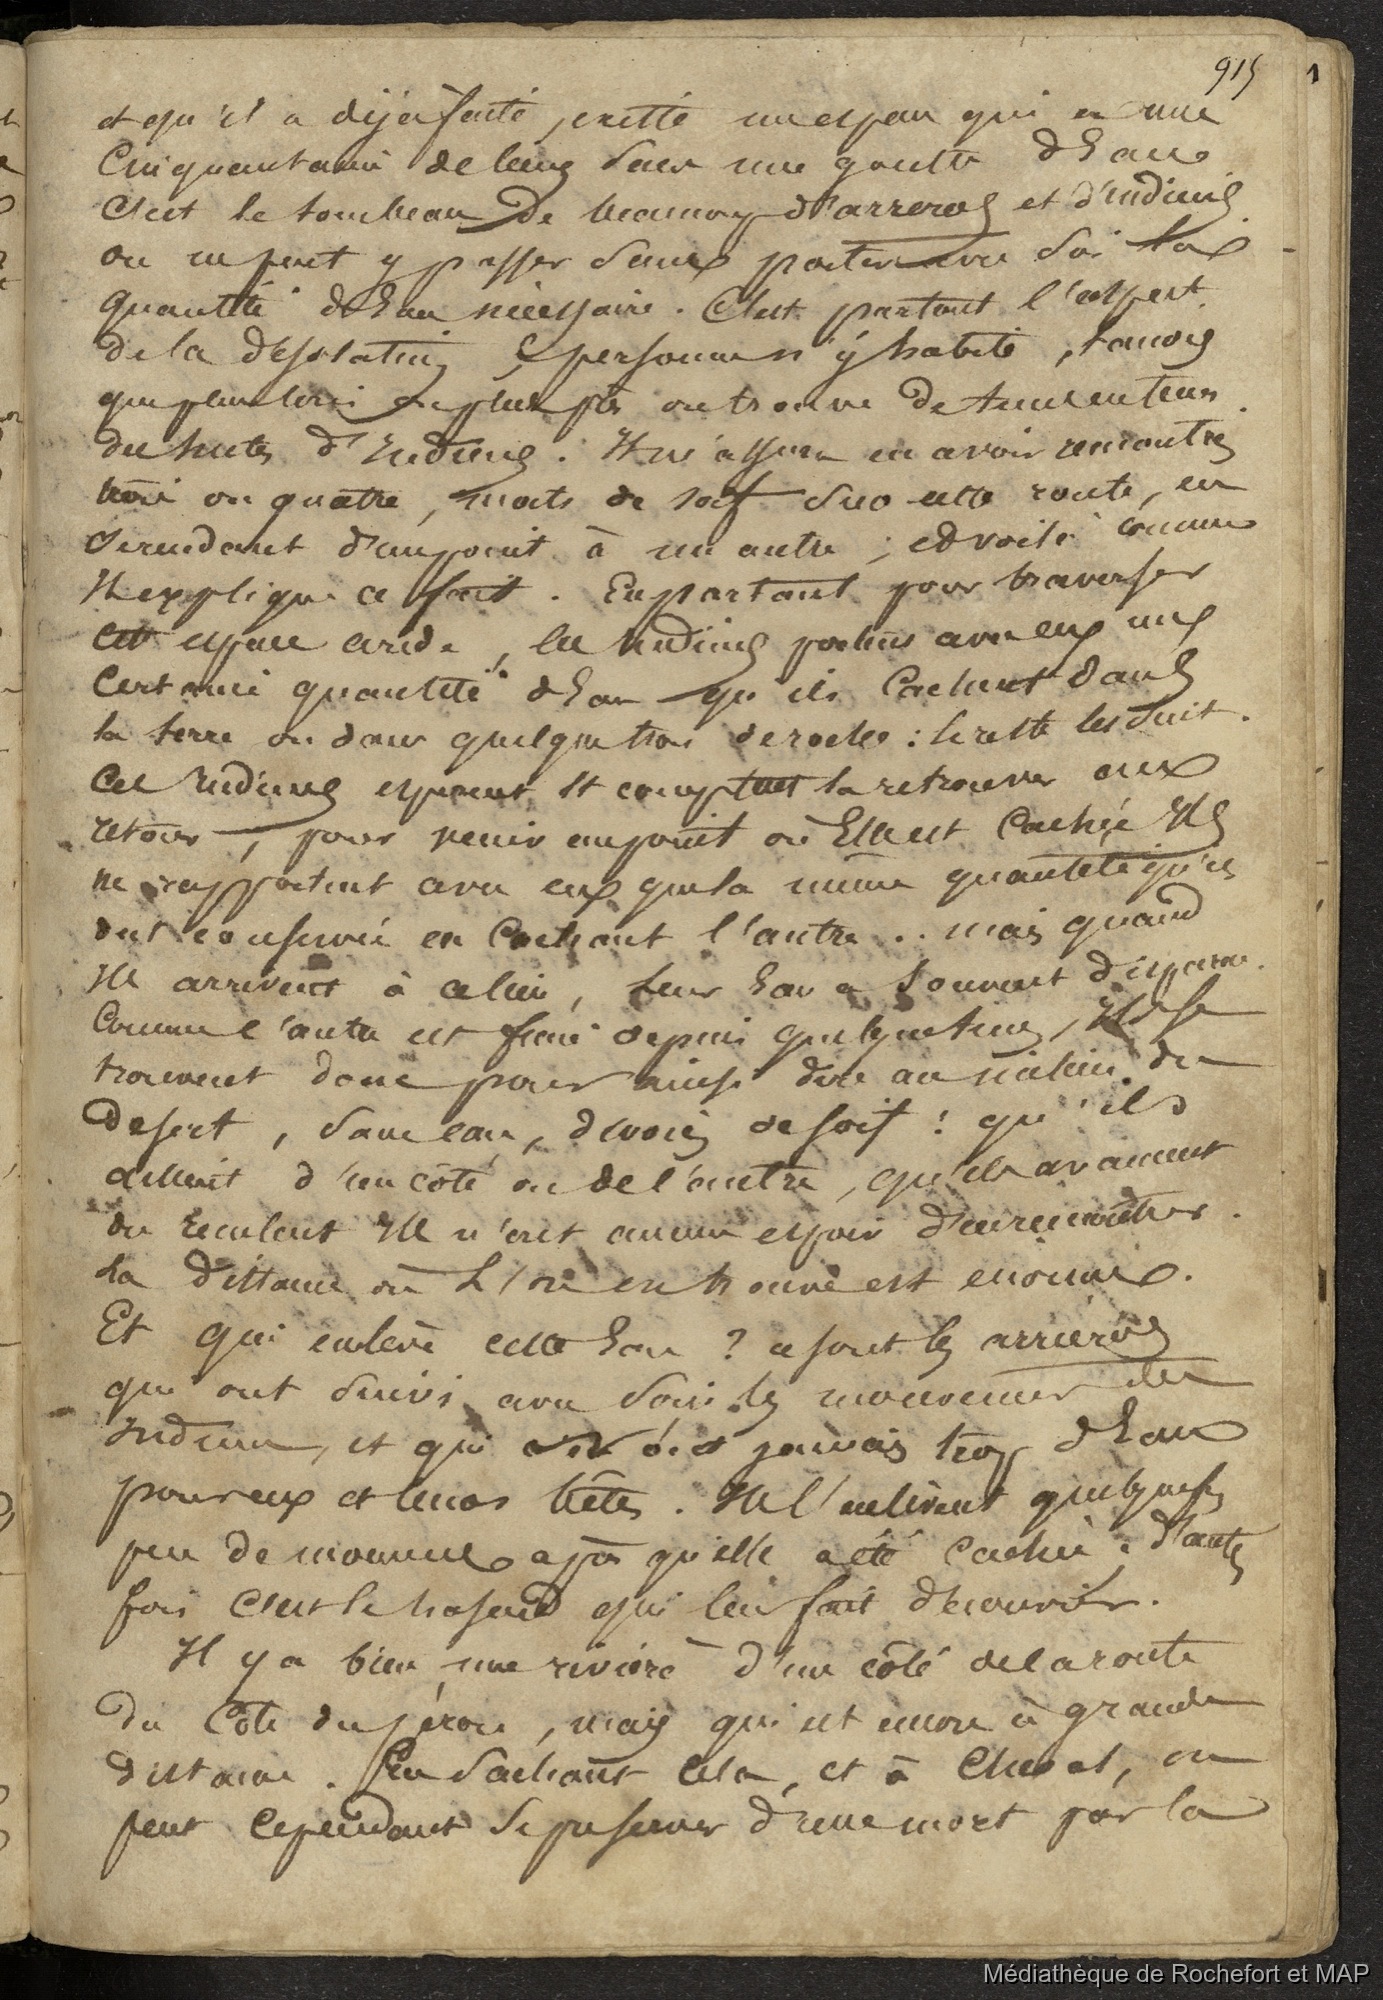 915
et qu'il a déja faite, existe un espau qui a une
Cinquantaine de lieues sans une goutte d'Eau
C'est le tombeau de beaucoup d'arreros et d'indiens
on ne peut y passer sans porter avec soi la
quantité d'Eau nécessaire. C'est partout l'aspect
de la désolation, & personne n'y habite, tandis
que plus loin ou plus près on trouve de tems en tems
des hutes d'Indiens. Il m'assure en avoir rencontrés
trois ou quatre, morts de soif sur cette route, en
se rendant d'un point à un autre ; et voilà comme
Il explique ce fait. En partant pour traverser
cet espace aride, les Indiens portent avec eux une
Certaine quantité d'Eau qu'ils Cachent dans
la terre ou dans quelque trou de roche : le reste les suit.
Ces Indiens espérent et comptent la retrouver au
retour, pour venir au point où Elle est Cachée Ils
ne rapportent avec eux que la même quantité qu'ils
ont conservée en Cachant l'autre .. mais quand
Ils arrivent à celui, leur Eau a souvent disparu.
Comme l'autre est finie depuis quelque tems, Ils se
trouvent donc pour ainsi dire au milieu du
desert, sans eau, dévorés de soif : qu'ils
aillent d'un côté ou de l'autre, qu'ils avancent
ou reculent Ils n'ont aucun espoir d'en rencontrer.
La distance où L'on en trouve est enorme.
Et qui enlève cette Eau ? ce sont les arrieros
qui ont suivi avec soin les mouvemens des
Indiens, et qui n'ont jamais trop d'Eau
pour eux et leurs bêtes. Ils l'enlèvent quelquefois
peu de momens après qu'elle a été Cachée ; d'autres
fois C'est le hasard qui leur fait découvrir.
Il y a bien une rivière d'un côté de la route
du Côté du Pérou, mais qui est encore à grande
distance. En Sachant Cela, et à Cheval, on
peut Cependant se préserver d'une mort par la
Médiathèque de Rochefort et MAP